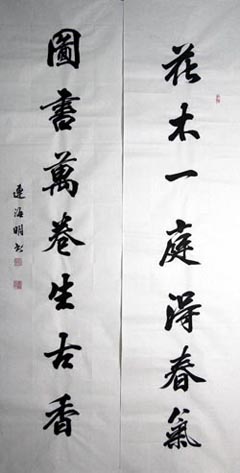 花木一庭得春氣
圖書萬卷生古香
連海明書